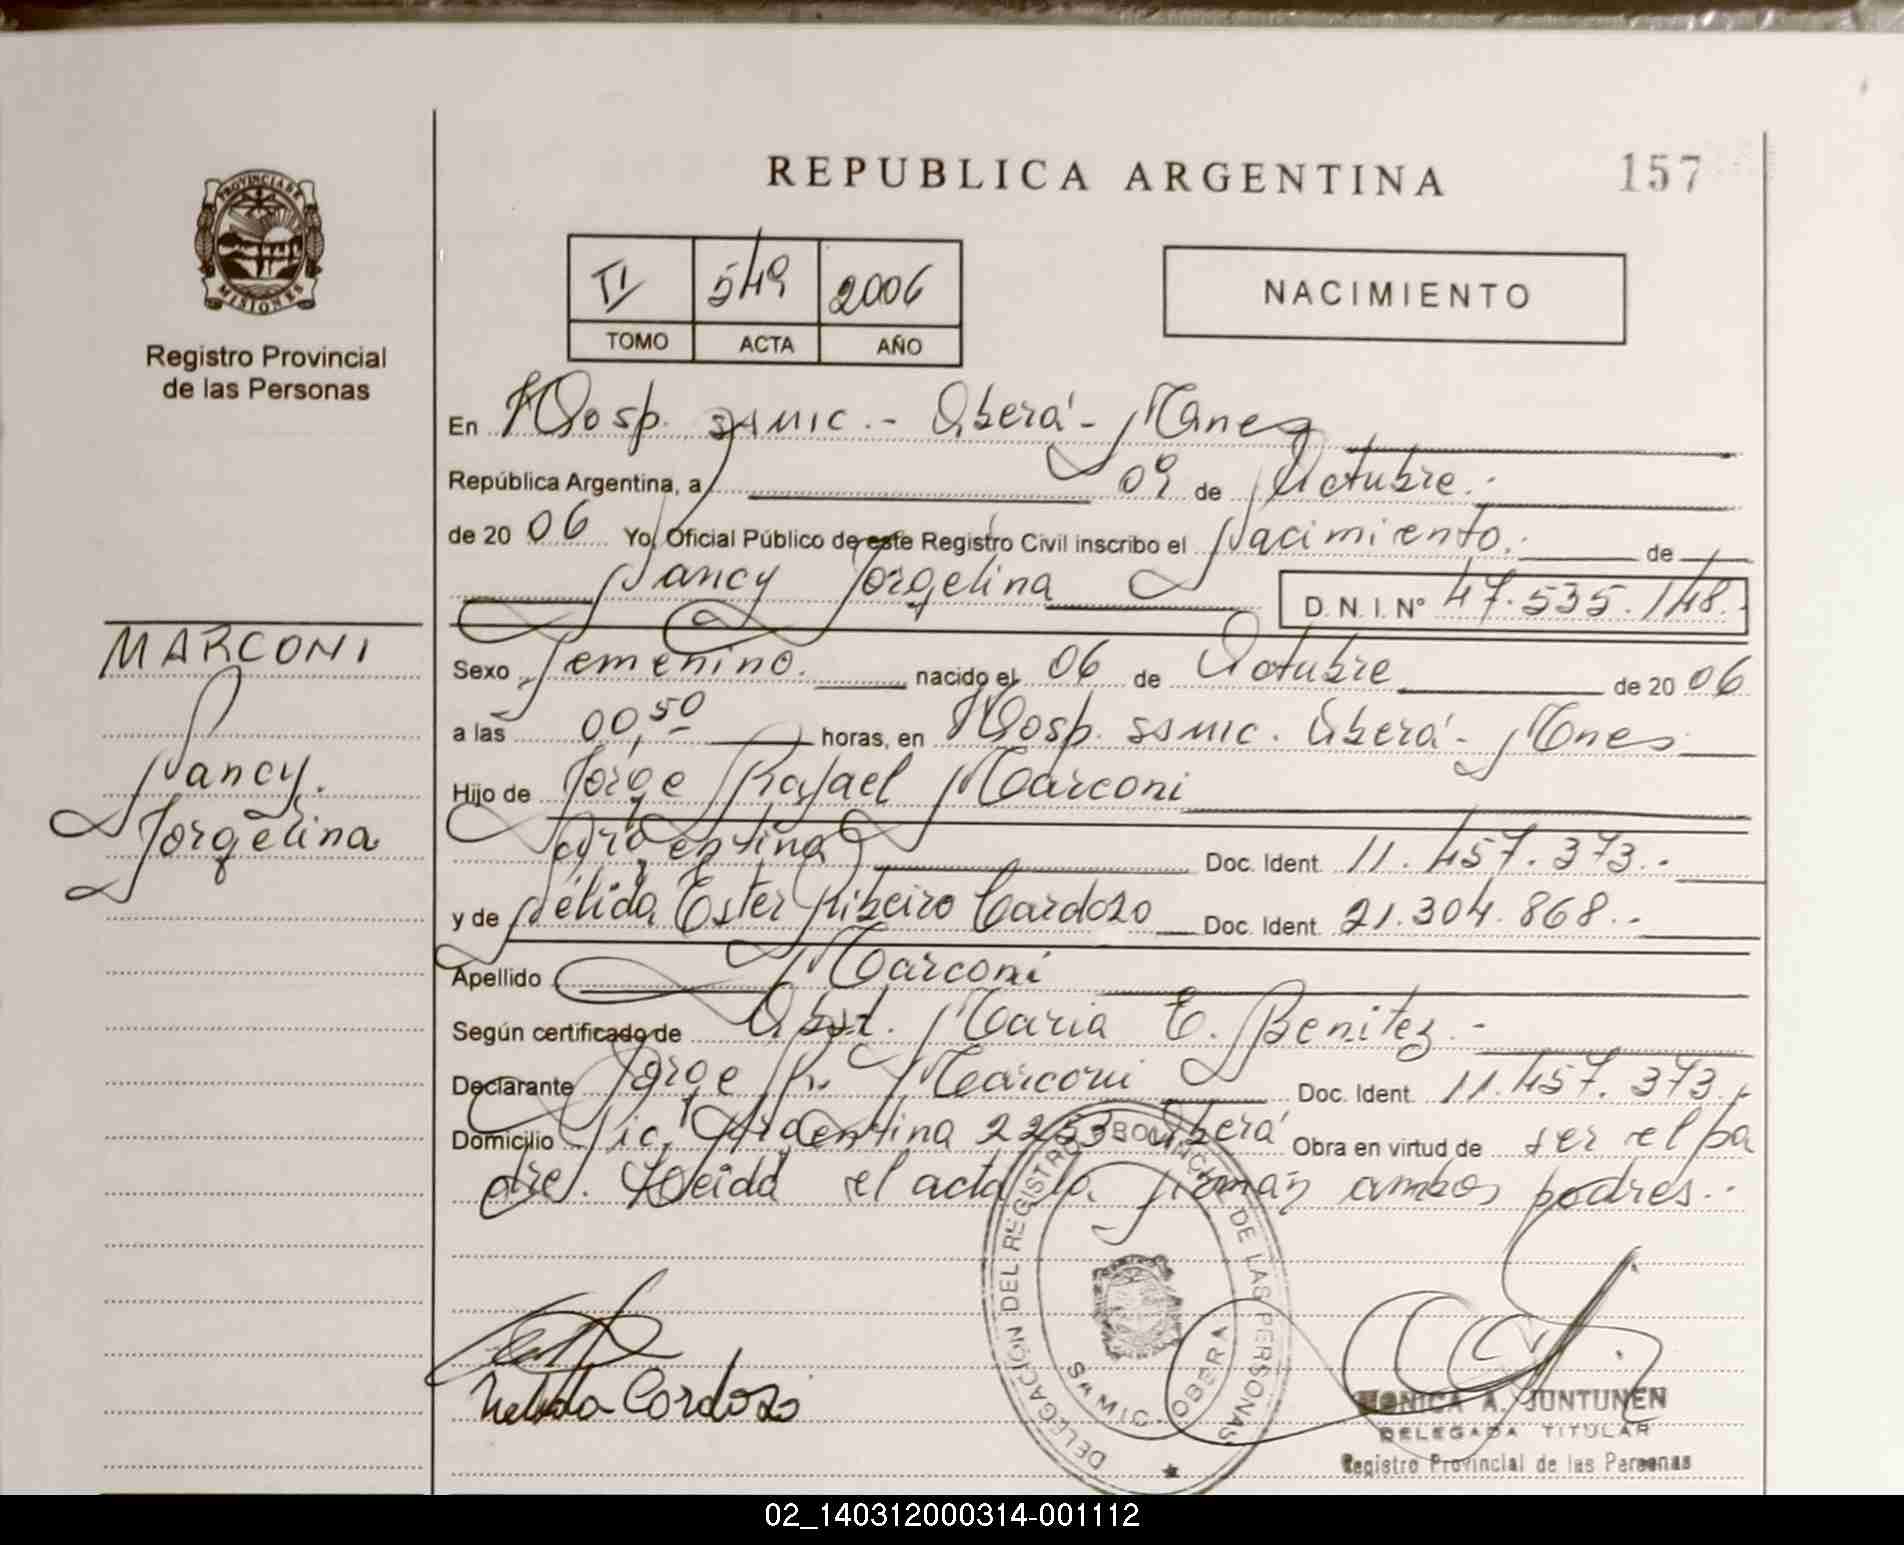 REPUBLICA ARGENTINA
157
PROVINCIA DE
MISIONES
Registro Provincial
de las Personas
TI 549 2006
TOMO ACTA AÑO
NACIMIENTO
En Hosp. SAMIC.- Oberá - Mnes
República Argentina, a 09 de Octubre.
de 2006 Yo, Oficial Público de este Registro Civil inscribo el Nacimiento. de
Nancy Jorgelina D.N.I. Nº 47.535.148.-
MARCONI
Nancy.
Jorgelina
Sexo Femenino. nacido el 06 de Octubre de 2006
a las 00,50 horas, en Hosp. SAMIC. Oberá - Mnes
Hijo de Jorge Rafael Marconi
Argentina Doc. Ident. 11.457.373.-
y de Nélida Ester Ribeiro Cardozo Doc. Ident. 21.304.868.-
Apellido Marconi
Según certificado de Obst. Maria E. Benitez.-
Declarante Jorge R. Marconi Doc. Ident. 11.457.373.-
Domicilio Fic. Argentina 2253 Oberá Obra en virtud de ser el pa
dre. Leida el acta la firman ambos padres.-
DELEGACIÓN DEL REGISTRO PROVINCIAL DE LAS PERSONAS
SAMIC - OBERA
Nelida Cardozo
MONICA A. JUNTUNEN
DELEGADA TITULAR
Registro Provincial de las Personas
02_140312000314-001112